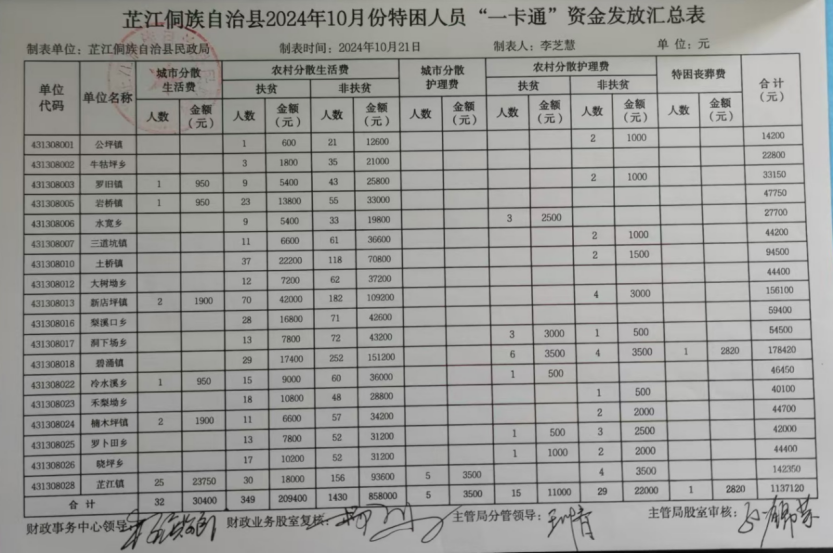 芷江侗族自治县2024年10月份特困人员“一卡通”资金发放汇总表
制表单位：芷江侗族自治县民政局 制表时间：2024年10月21日 制表人：李芝慧 单 位：元
单位代码 单位名称 城市分散生活费 农村分散生活费 城市分散护理费 农村分散护理费 特困丧葬费 合计（元）
扶贫 非扶贫 扶贫 非扶贫
人数 金额（元） 人数 金额（元） 人数 金额（元） 人数 金额（元） 人数 金额（元） 人数 金额（元） 人数 金额（元）
431308001 公坪镇 1 600 21 12600 2 1000 14200
431308002 牛牯坪乡 3 1800 35 21000 22800
431308003 罗旧镇 1 950 9 5400 43 25800 2 1000 33150
431308005 岩桥镇 1 950 23 13800 55 33000 47750
431308006 水宽乡 9 5400 33 19800 3 2500 27700
431308007 三道坑镇 11 6600 61 36600 2 1000 44200
431308010 土桥镇 37 22200 118 70800 2 1500 94500
431308012 大树坳乡 12 7200 62 37200 44400
431308013 新店坪镇 2 1900 70 42000 182 109200 4 3000 156100
431308016 梨溪口乡 28 16800 71 42600 59400
431308017 洞下场乡 13 7800 72 43200 3 3000 1 500 54500
431308018 碧涌镇 29 17400 252 151200 6 3500 4 3500 1 2820 178420
431308022 冷水溪乡 1 950 15 9000 60 36000 1 500 46450
431308023 禾梨坳乡 18 10800 48 28800 1 500 40100
431308024 楠木坪镇 2 1900 11 6600 57 34200 2 2000 44700
431308025 罗卜田乡 13 7800 52 31200 1 500 3 2500 42000
431308026 晓坪乡 17 10200 52 31200 1 1000 2 2000 44400
431308028 芷江镇 25 23750 30 18000 156 93600 5 3500 4 3500 142350
合 计 32 30400 349 209400 1430 858000 5 3500 15 11000 29 22000 1 2820 1137120
财政事务中心领导： 财政业务股室复核： 主管局分管领导： 主管局股室审核：